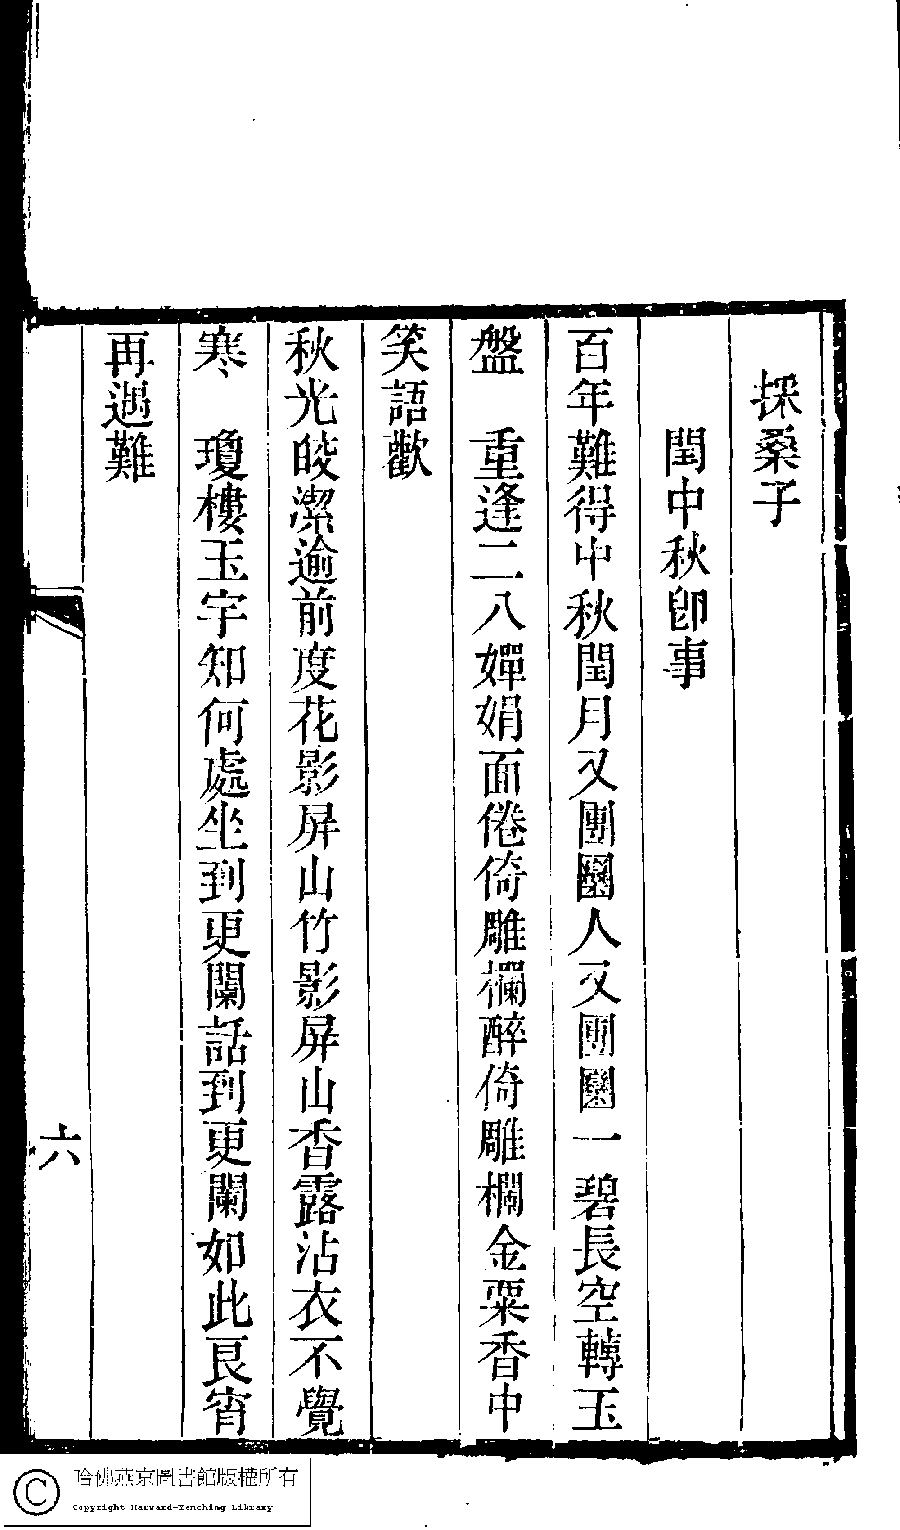 採桑子
閏中秋卽事
百年難得中秋閏月又團圞人又團圞一碧長空轉玉
盤　重逢二八嬋娟面倦倚雕欄醉倚雕欄金粟香中
笑語歡
秋光皎潔逾前度花影屏山竹影屏山香露沾衣不覺
寒　瓊樓玉宇知何處坐到更闌話到更闌如此良宵
再遇難
六
哈佛燕京圖書館版權所有
Copyright Harvard-Yenching Library